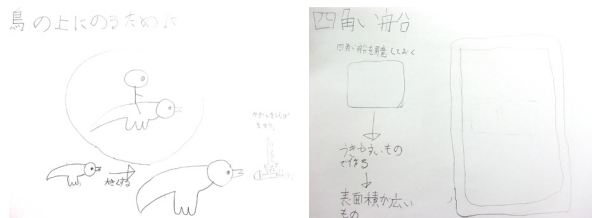 鳥の上にのるために
大きくする
四角い船
四角い船を用意しておく
うきやすいもの
で作る
表面積が広い
もの